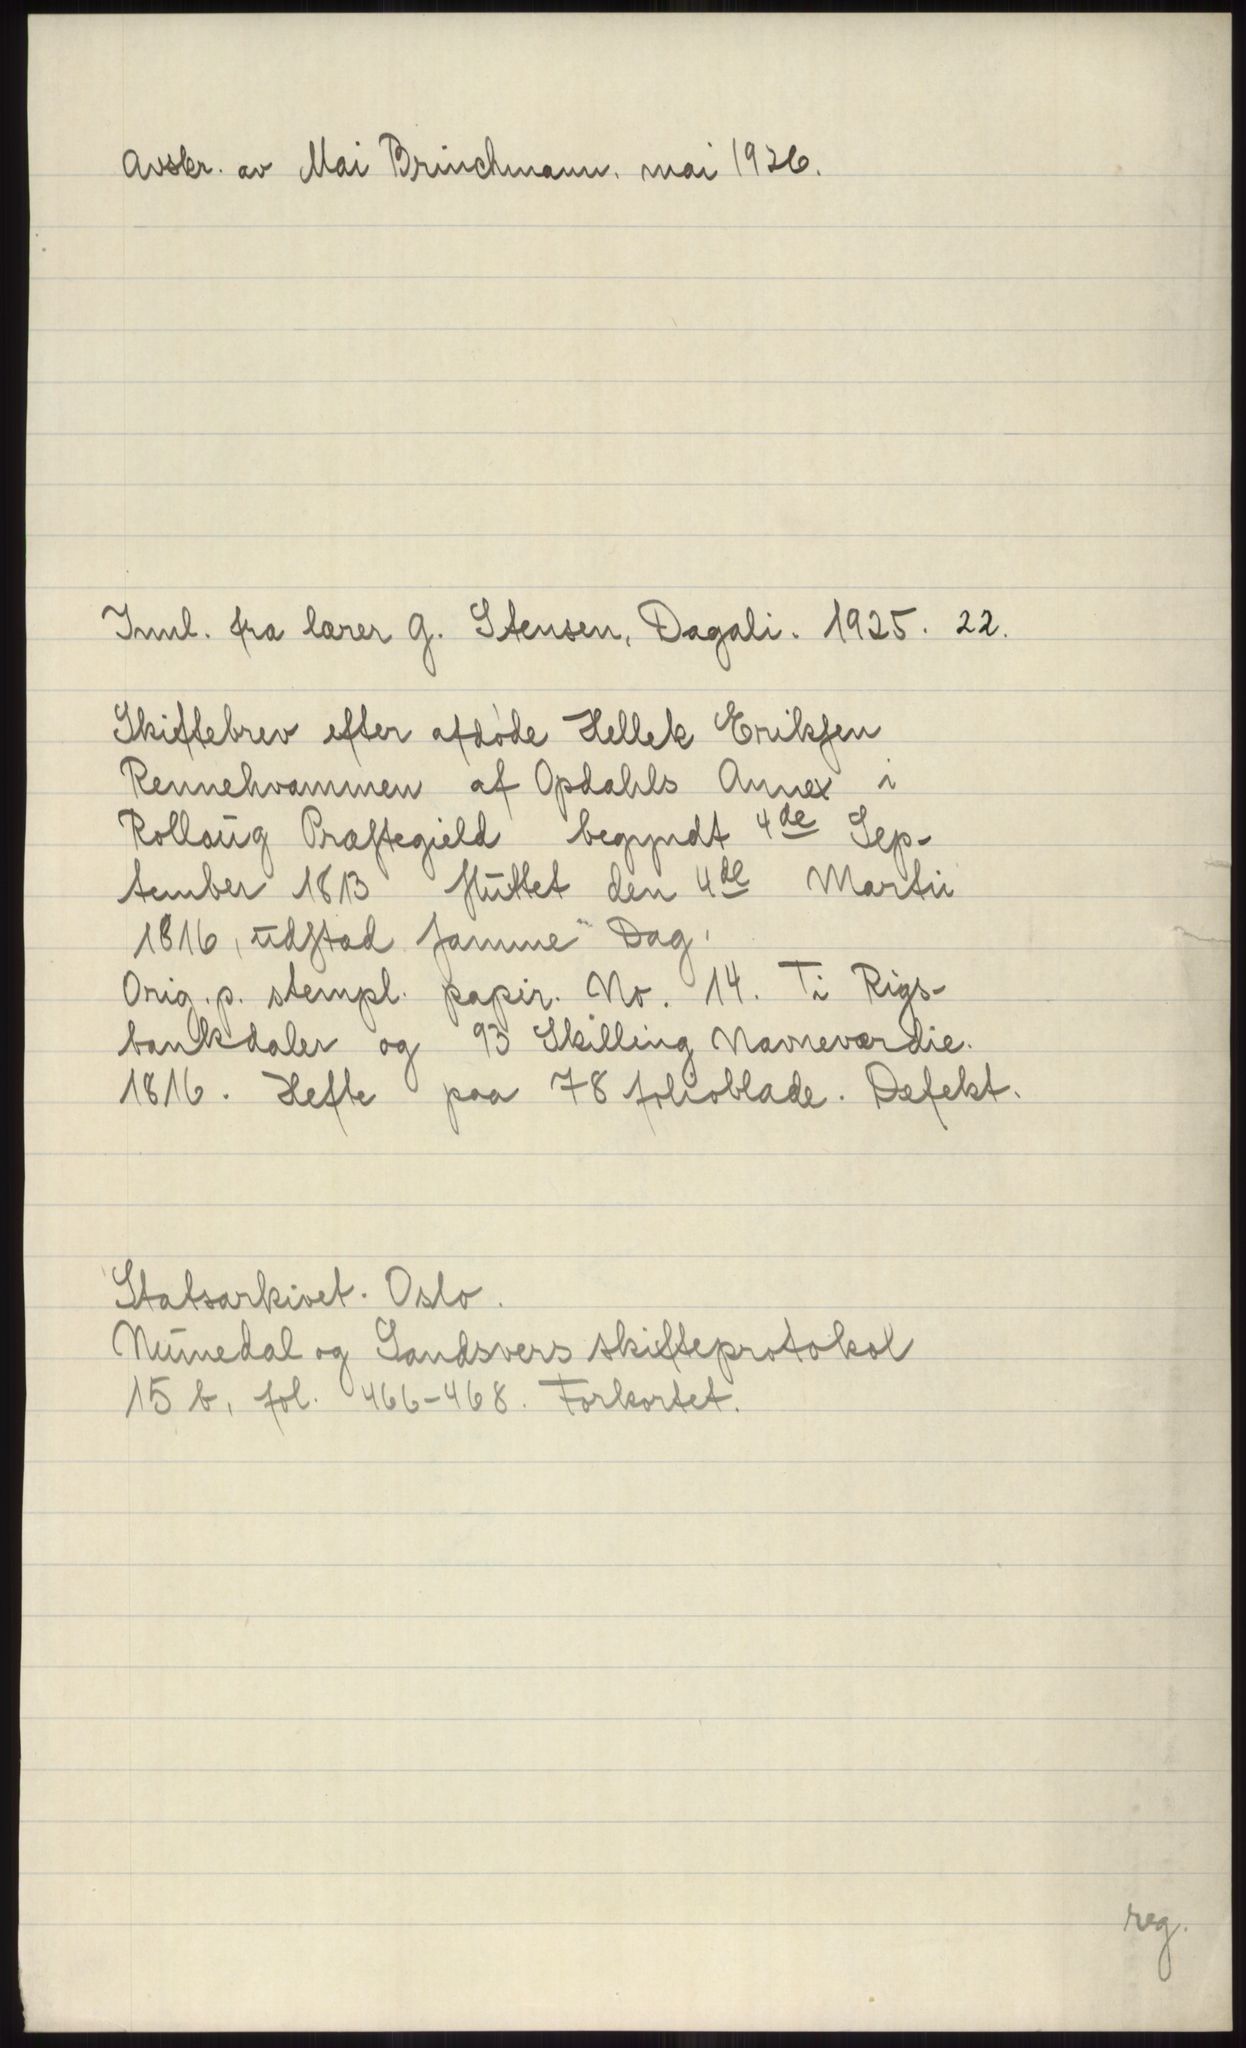 Avskr. av Mai Brinchmann. mai 1926.
Innl. fra lærer G. Stensen, Dagali. 1925. 22.
Skiftebrev efter afdøde Hellek Eriksen
Rennehvammen af Opdahls Annex i
Rollaug Præstegield begyndt 4de Sep-
tember 1813 sluttet den 4de Martii
1816, udstæd samme Dag.
Orig. p. stempl. papir. No. 14. Ti Rigs-
bankdaler og 93 Skilling Navneværdie.
1816. Hefte paa 78 folioblade. Defekt.
Statsarkivet. Oslo.
Numedal og Sandsvers skifteprotokol
15 b, fol. 466-468. Forkortet.
reg.